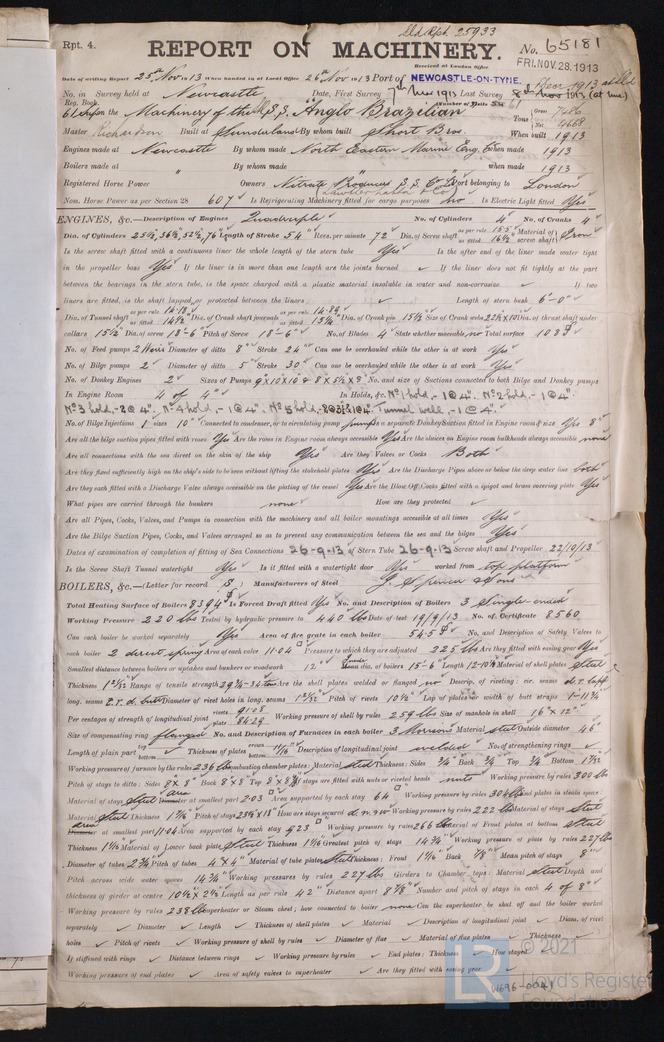 Rpt. 4.
REPORT ON MACHINERY.
No. 65181
Received at London Office
FRI. NOV. 28. 1913
Date of writing Report 25th Nov 1913 When handed in at Local Office 26th Nov 1913 Port of NEWCASTLE-ON-TYNE.
No. in Survey held at Newcastle Date, First Survey 7th Last Survey
Reg. Book.
61 on the Machinery of the S.S. "Anglo Brazilian"
Master Richardson Built at Sunderland By whom built Short Bros. When built 1913
Tons Gross Net 4668
Engines made at Newcastle By whom made North Eastern Marine Eng. Co. when made 1913
Boilers made at " By whom made " when made 1913
Registered Horse Power Owners Nitrate Producers S.S. Co Ld Port belonging to London
Nom. Horse Power as per Section 28 607 Is Refrigerating Machinery fitted for cargo purposes no Is Electric Light fitted Yes
ENGINES, &c.—Description of Engines Quadruple No. of Cylinders 4 No. of Cranks 4
Dia. of Cylinders Length of Stroke 54 Revs. per minute 72 Dia. of Screw shaft as per rule 15.5 as fitted 16½ Material of screw shaft Iron
Is the screw shaft fitted with a continuous liner the whole length of the stern tube Yes Is the after end of the liner made water tight
in the propeller boss Yes If the liner is in more than one length are the joints burned ✓ If the liner does not fit tightly at the part
between the bearings in the stern tube, is the space charged with a plastic material insoluble in water and non-corrosive ✓ If two
liners are fitted, is the shaft lapped or protected between the liners ✓ Length of stern bush 6'-0"
Dia. of Tunnel shaft as per rule 14.18 as fitted Dia. of Crank shaft journals as per rule 14.89 as fitted Dia. of Crank pin 15½ Size of Crank webs Dia. of thrust shaft under
collars 15½ Dia. of screw 18'-6" Pitch of Screw 18'-6" No. of Blades 4 State whether moveable no Total surface 108
No. of Feed pumps 2 Diameter of ditto 8" Stroke 24" Can one be overhauled while the other is at work Yes
No. of Bilge pumps 2 Diameter of ditto 5" Stroke 30" Can one be overhauled while the other is at work Yes
No. of Donkey Engines 2 Sizes of Pumps 9 x 10 x 10 & 8 x 5½ x 8" No. and size of Suctions connected to both Bilge and Donkey pumps
In Engine Room 4 of 4" In Holds, &c. No 1 hold, - 1 @ 4". No 2 hold, - 1 @ 4"
No 3 hold, - 2 @ 4". No 4 hold, - 1 @ 4". No 5 hold, Tunnel well, - 1 @ 4".
No. of Bilge Injections 1 sizes 10" Connected to condenser, or to circulating pump pump Is a separate Donkey Suction fitted in Engine room & size Yes 8"
Are all the bilge suction pipes fitted with roses Yes Are the roses in Engine room always accessible Yes Are the sluices on Engine room bulkheads always accessible none
Are all connections with the sea direct on the skin of the ship Yes Are they Valves or Cocks Both
Are they fixed sufficiently high on the ship's side to be seen without lifting the stokehold plates Yes Are the Discharge Pipes above or below the deep water line both
Are they each fitted with a Discharge Valve always accessible on the plating of the vessel Yes Are the Blow Off Cocks fitted with a spigot and brass covering plate Yes
What pipes are carried through the bunkers none How are they protected ✓
Are all Pipes, Cocks, Valves, and Pumps in connection with the machinery and all boiler mountings accessible at all times Yes
Are the Bilge Suction Pipes, Cocks and Valves arranged so as to prevent any communication between the sea and the bilges Yes
Dates of examination of completion of fitting of Sea Connections 26-9-13 of Stern Tube 26-9-13 Screw shaft and Propeller 22/10/13
Is the Screw Shaft Tunnel watertight Yes Is it fitted with a watertight door Yes worked from top platform
BOILERS, &c.—(Letter for record S) Manufacturers of Steel J. Spencer & Sons
Total Heating Surface of Boilers 8394 Is Forced Draft fitted Yes No. and Description of Boilers 3 Single ended
Working Pressure 220 lbs Tested by hydraulic pressure to 440 lbs Date of test 19/9/13 No. of Certificate 8560
Can each boiler be worked separately Yes Area of fire grate in each boiler 54.5 No. and Description of Safety Valves to
each boiler 2 direct spring Area of each valve 11.04 Pressure to which they are adjusted 225 lbs Are they fitted with easing gear Yes
Smallest distance between boilers or uptakes and bunkers or woodwork 12" dia. of boilers 15'-6" Length Material of shell plates Steel
Thickness Range of tensile strength Are the shell plates welded or flanged no Descrip. of riveting: cir. seams d.r. lap
long. seams Diameter of rivet holes in long. seams Pitch of rivets Lap of plates or width of butt straps
Per centages of strength of longitudinal joint rivets 91.08 plate 84.29 Working pressure of shell by rules 259 lbs Size of manhole in shell 16" x 12"
Size of compensating ring flanged No. and Description of Furnaces in each boiler 3 Morrison Material steel Outside diameter 46"
Length of plain part top bottom Thickness of plates crown bottom Description of longitudinal joint welded No. of strengthening rings ✓
Working pressure of furnace by the rules 236 lbs Combustion chamber plates: Material Steel Thickness: Sides ¾" Back ¾ Top ¾ Bottom
Pitch of stays to ditto: Sides 8 x 8" Back Top If stays are fitted with nuts or riveted heads nuts Working pressure by rules 300 lbs
Material of stays Steel area at smallest part 2.03 Area supported by each stay 64 Working pressure by rules End plates in steam space
Material Steel Thickness Pitch of stays How are stays secured Working pressure by rules 222 lbs Material of stays Steel
area at smallest part 11.04 Area supported by each stay 423 Working pressure by rules 266 lbs Material of Front plates at bottom steel
Thickness Material of Lower back plate Steel Thickness Greatest pitch of stays 14¾ Working pressure of plate by rules 227 lbs
Diameter of tubes 2¾ Pitch of tubes 4 x 4" Material of tube plates Steel Thickness: Front Back Mean pitch of stays 8"
Pitch across wide water spaces 14¾ Working pressures by rules 227 lbs Girders to Chamber tops: Material Steel Depth and
thickness of girder at centre Length as per rule 42" Distance apart Number and pitch of stays in each 4 of 8"
Working pressure by rules 238 lbs Superheater or Steam chest; how connected to boiler none Can the superheater be shut off and the boiler worked
separately ✓ Diameter ✓ Length ✓ Thickness of shell plates ✓ Material ✓ Description of longitudinal joint ✓ Diam. of rivet
holes ✓ Pitch of rivets ✓ Working pressure of shell by rules ✓ Diameter of flue ✓ Material of flue plates ✓ Thickness ✓
If stiffened with rings ✓ Distance between rings ✓ Working pressure by rules ✓ End plates: Thickness ✓ How stayed
Working pressure of end plates ✓ Area of safety valves to superheater ✓ Are they fitted with easing gear ✓
LR
© 2021
Lloyd's Register
Foundation
W696-0041